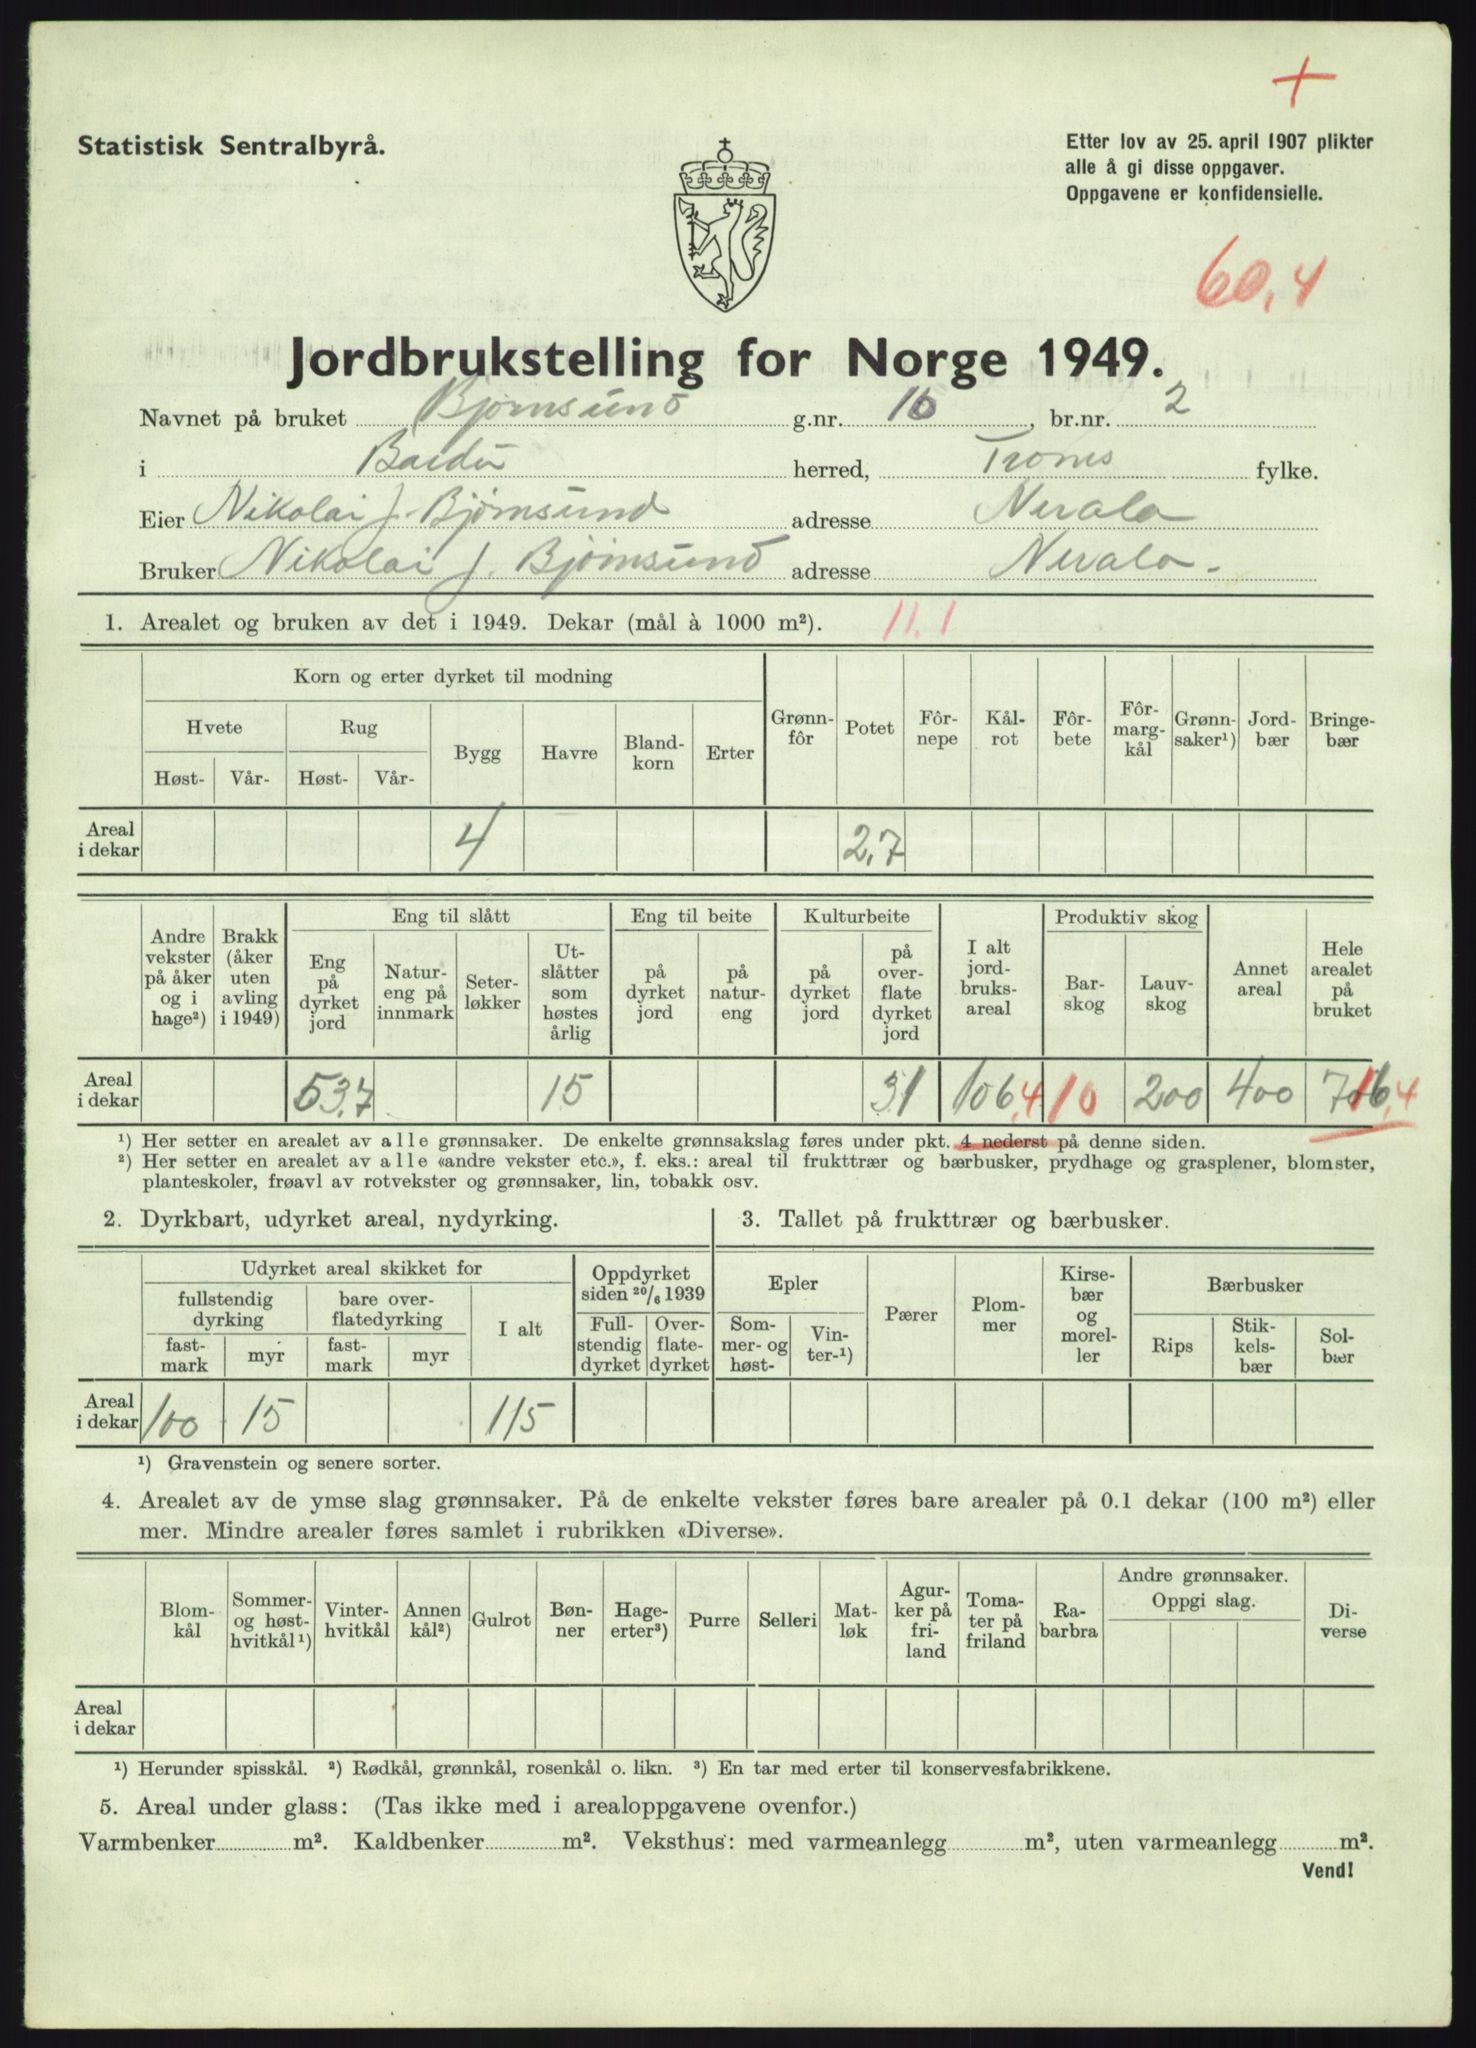 +
Statistisk Sentralbyrå.
Etter lov av 25. april 1907 plikter
alle å gi disse oppgaver.
Oppgavene er konfidensielle.
60,4
Jordbrukstelling for Norge 1949.
Navnet på bruket Bjørnsund g.nr. 16, br.nr. 2
i Bardu herred, Troms fylke.
Eier Nikolai J. Bjørnsund adresse Nerala
Bruker Nikolai J. Bjørnsund adresse Nerala.
1. Arealet og bruken av det i 1949. Dekar (mål à 1000 m²). 11.1
Korn og erter dyrket til modning
Hvete Rug Bygg Havre Bland-korn Erter Grønn-fôr Potet Fôr-nepe Kål-rot Fôr-bete Fôr-marg-kål Grønn-saker¹) Jord-bær Bringe-bær
Høst- Vår- Høst- Vår-
Areal i dekar 4 2,7
Andre vekster på åker og i hage²) Brakk (åker uten avling i 1949) Eng til slått Eng til beite Kulturbeite I alt jord-bruks-areal Produktiv skog Annet areal Hele arealet på bruket
Eng på dyrket jord Natur-eng på innmark Seter-løkker Ut-slåtter som høstes årlig på dyrket jord på natur-eng på dyrket jord på over-flate dyrket jord Bar-skog Lauv-skog
Areal i dekar 53,7 15 31 106,4 10 200 400 716,4
¹) Her setter en arealet av alle grønnsaker. De enkelte grønnsakslag føres under pkt. 4 nederst på denne siden.
²) Her setter en arealet av alle «andre vekster etc.», f. eks.: areal til frukttrær og bærbusker, prydhage og grasplener, blomster,
planteskoler, frøavl av rotvekster og grønnsaker, lin, tobakk osv.
2. Dyrkbart, udyrket areal, nydyrking.
Udyrket areal skikket for Oppdyrket siden 20/6 1939
fullstendig dyrking bare over-flatedyrking I alt Full-stendig dyrket Over-flate-dyrket
fast-mark myr fast-mark myr
Areal i dekar 100 15 115
¹) Gravenstein og senere sorter.
3. Tallet på frukttrær og bærbusker.
Epler Pærer Plom-mer Kirse-bær og morel-ler Bærbusker
Som-mer- og høst- Vin-ter-¹) Rips Stik-kels-bær Sol-bær
4. Arealet av de ymse slag grønnsaker. På de enkelte vekster føres bare arealer på 0.1 dekar (100 m²) eller
mer. Mindre arealer føres samlet i rubrikken «Diverse».
Blom-kål Sommer- og høst-hvitkål¹) Vinter-hvitkål Annen kål²) Gulrot Bøn-ner Hage-erter³) Purre Selleri Mat-løk Agur-ker på fri-land Toma-ter på friland Ra-barbra Andre grønnsaker. Oppgi slag. Di-verse
Areal i dekar
¹) Herunder spisskål. ²) Rødkål, grønnkål, rosenkål o. likn. ³) En tar med erter til konservesfabrikkene.
5. Areal under glass: (Tas ikke med i arealoppgavene ovenfor.)
Varmbenker m². Kaldbenker m². Veksthus: med varmeanlegg m², uten varmeanlegg m².
Vend!